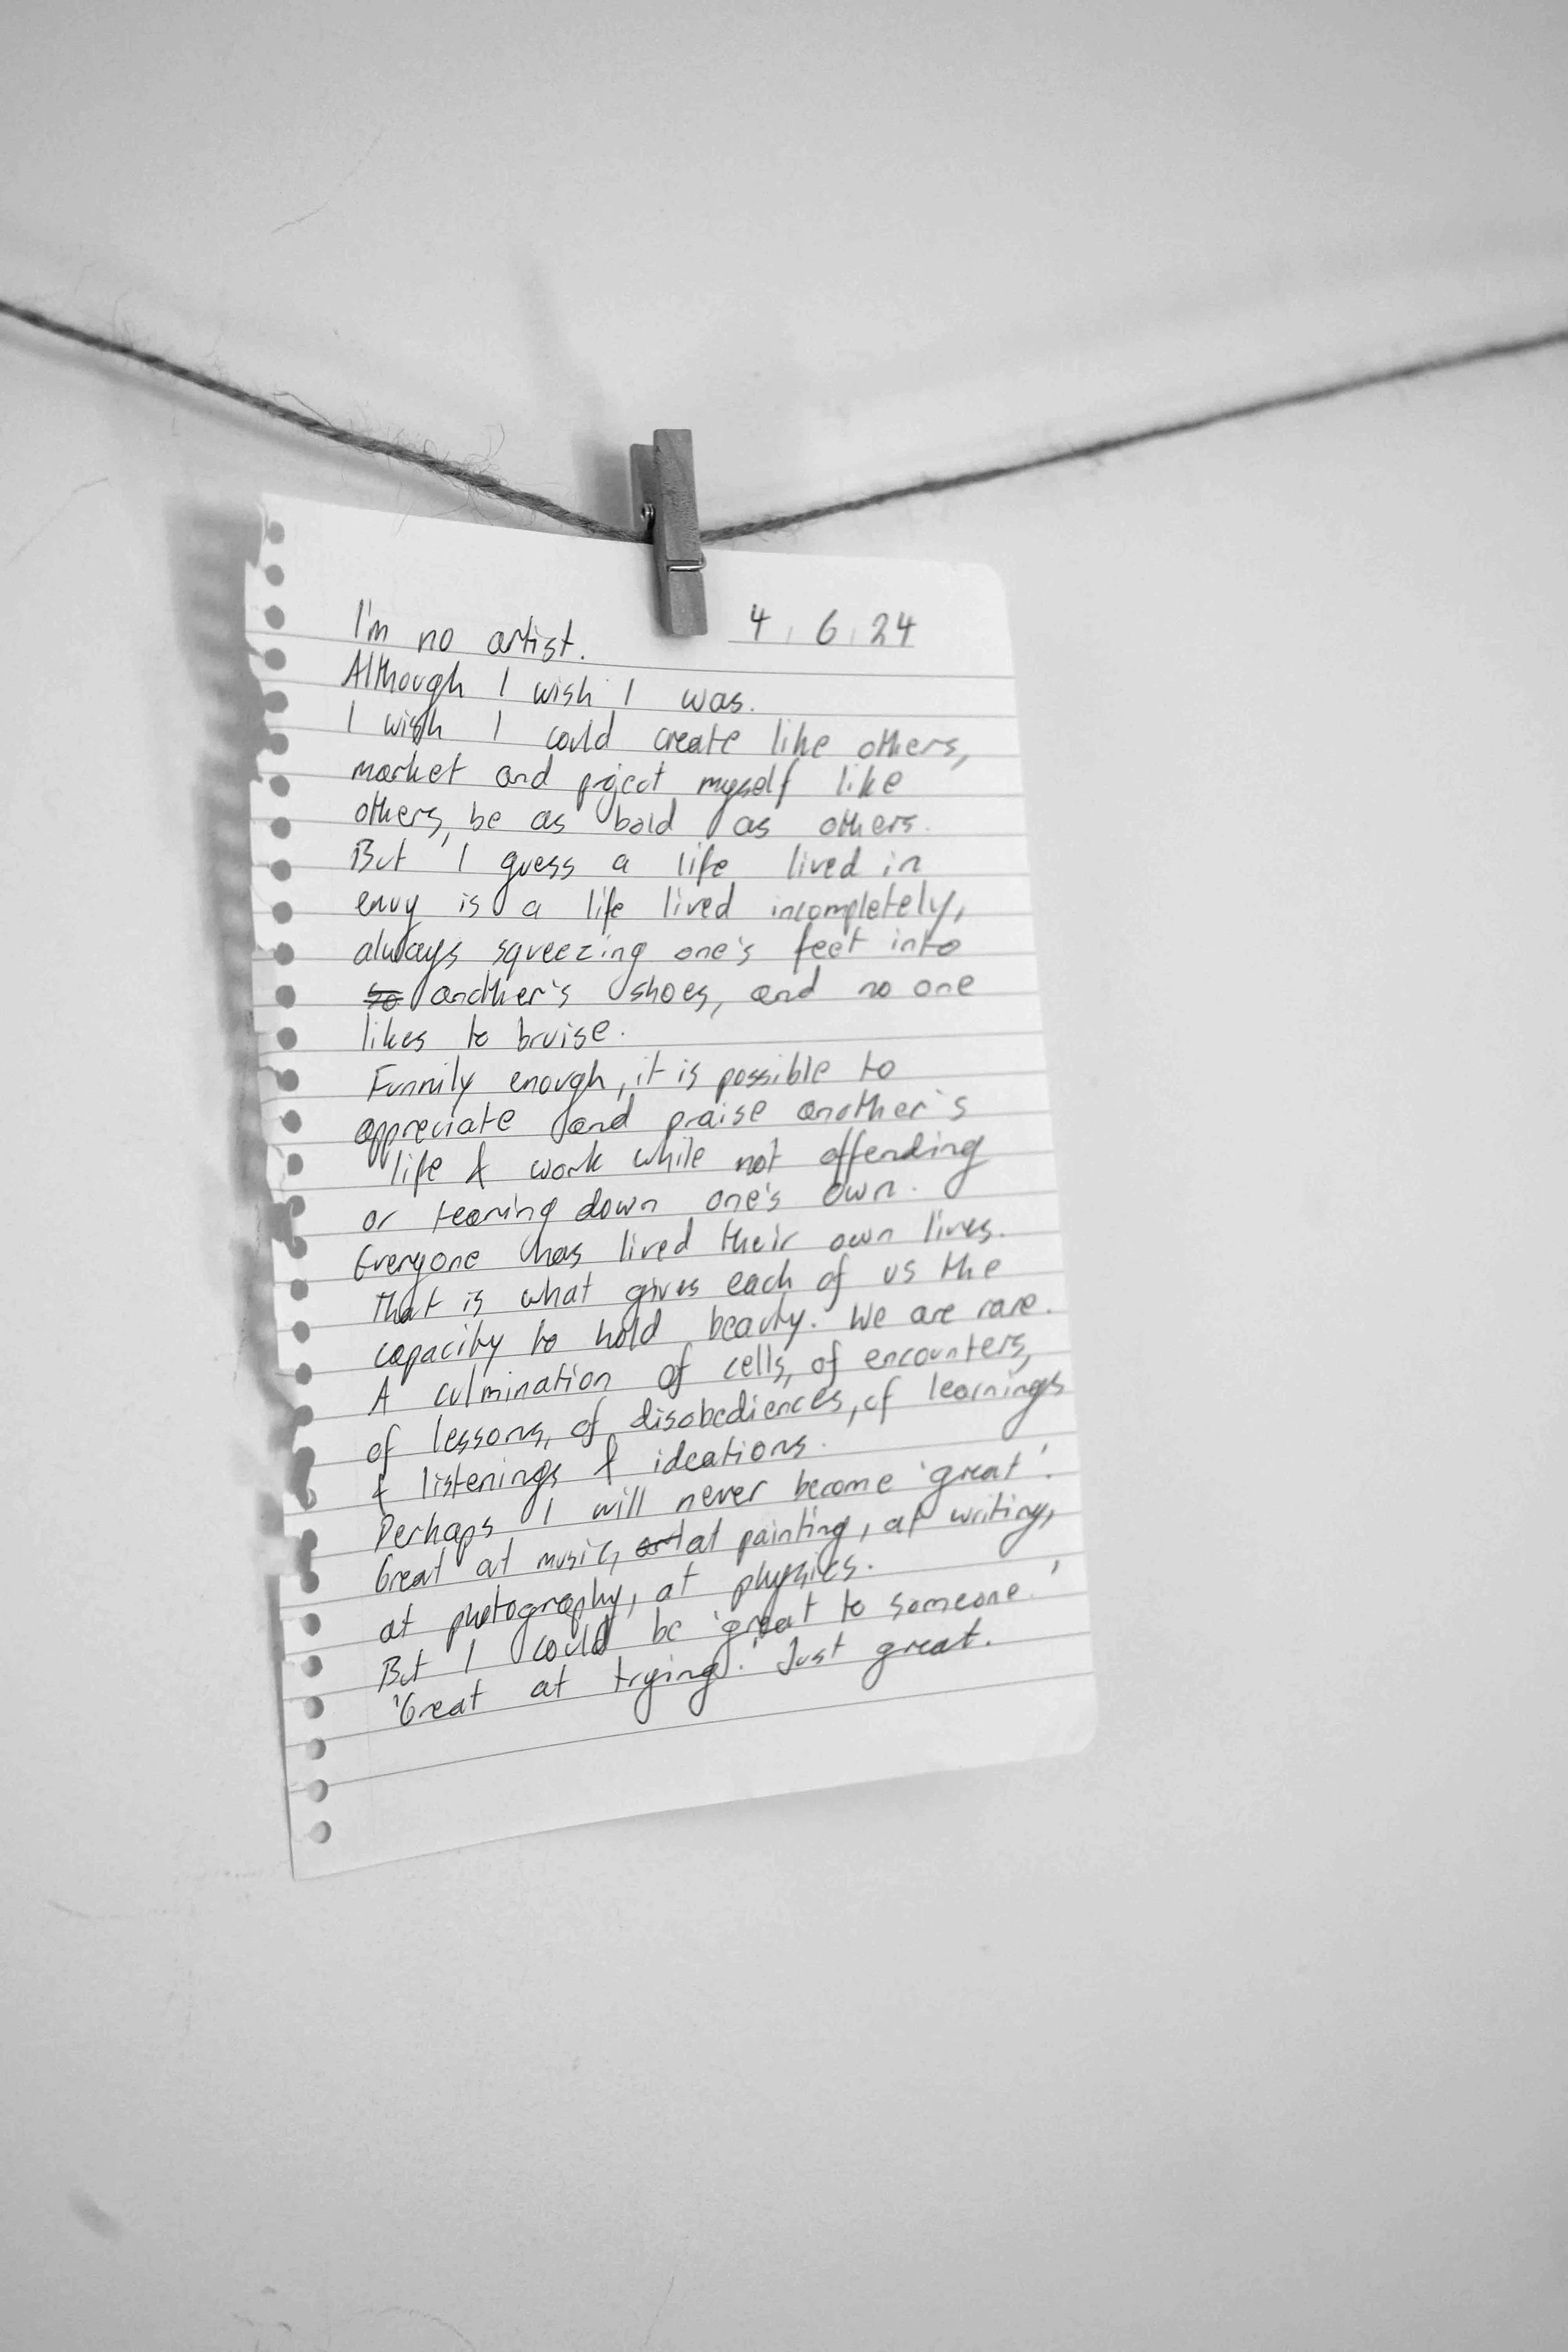 4 6 24
I'm no artist.
Although I wish I was.
I wish I could create like others,
market and project myself like
others, be as bold as others.
But I guess a life lived in
envy is a life lived incompletely,
always squeezing one's feet into
so another's shoes, and no one
likes to bruise.
Funnily enough, it is possible to
appreciate and praise another's
life & work while not offending
or tearing down one's own.
Everyone has lived their own lives.
That is what gives each of us the
capacity to hold beauty. We are rare.
A culmination of cells, of encounters,
of lessons, of disobediences, of learnings
& listenings & ideations.
Perhaps I will never become 'great'.
Great at music, at painting, at writing,
at photography, at physics.
But I could be 'great to someone.'
'Great at trying.' Just great.